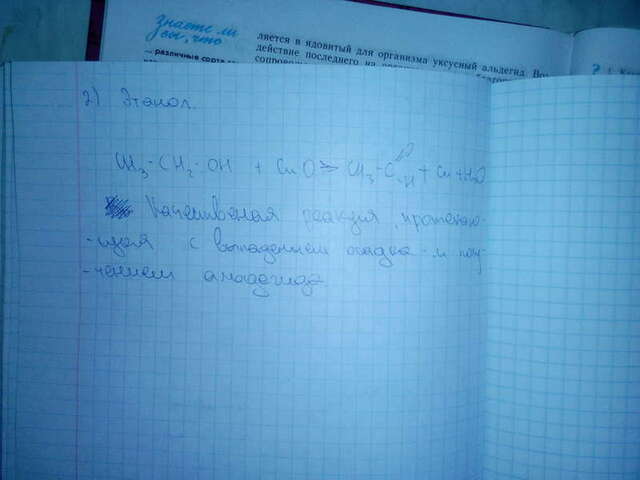 знаете ли
вы, что
ляется в ядовитый для организма уксусный альдегид.
действие последнего на
— различные сорта
сопрово
2) Этанол.
CH₃-CH₂-OH + CuO → CH₃-C=O-H + Cu + H₂O
Качественная реакция, протекаю-
-щая с выпадением осадка и полу-
-чением альдегида